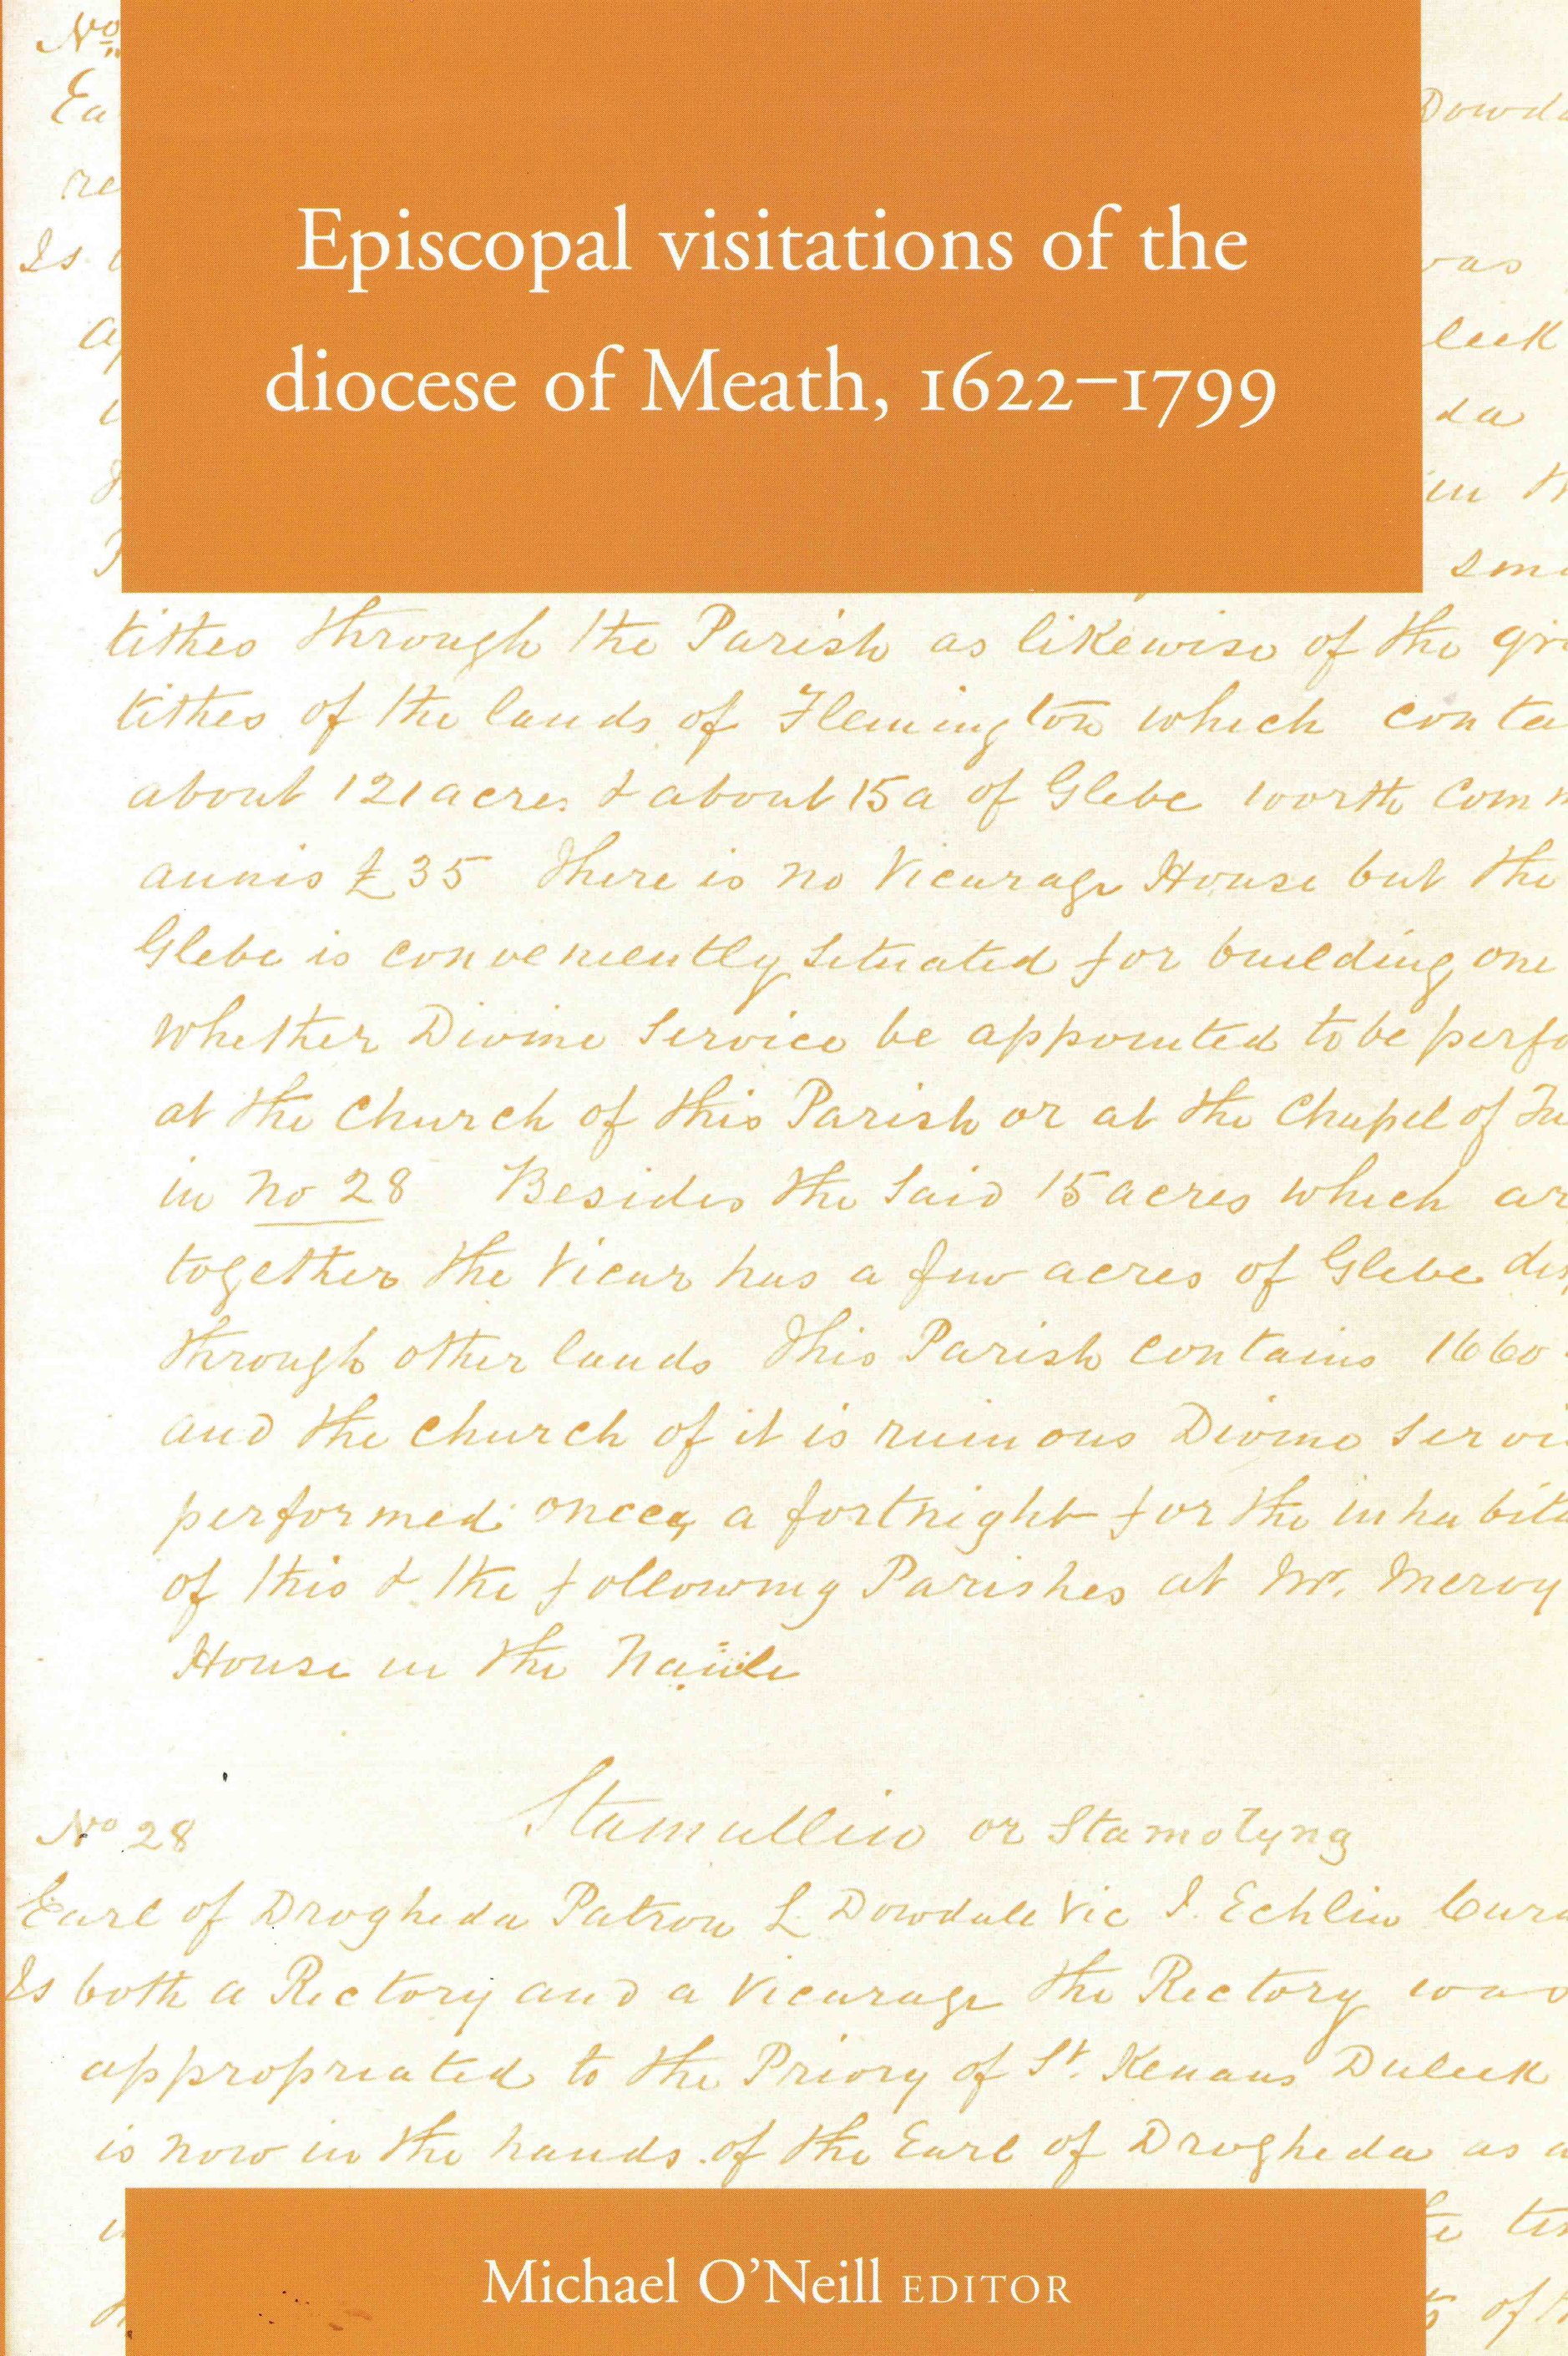 No
Ea
Dowda
re
Is
was
ap
leek
da
in th
sma
Episcopal visitations of the
diocese of Meath, 1622–1799
tithes through the Parish as likewise of the gre
tithes of the lands of Flemington which contai
about 121 acres & about 15a of Glebe worth comm
annis £35 There is no Vicarage House but the
Glebe is conveniently situated for building one
whether Divine Service be appointed to be perfo
at the Church of this Parish or at the Chapel of
in no 28 Besides the said 15 acres which ar
together the Vicar has a few acres of Glebe dis
through other lands This Parish contains 1660
and the church of it is ruinous Divine Servi
performed once a fortnight for the inhabita
of this & the following Parishes at Mr. Mervy
House in the
No 28 Stamullin or Stamolyng
Earl of Drogheda Patron L Dowdall Vic I. Echlin Cura
Is both a Rectory and a Vicarage The Rectory was
appropriated to the Priory of St. Kenans Duleek
is now in the hands of the Earl of Drogheda as a
Michael O'Neill EDITOR
of th